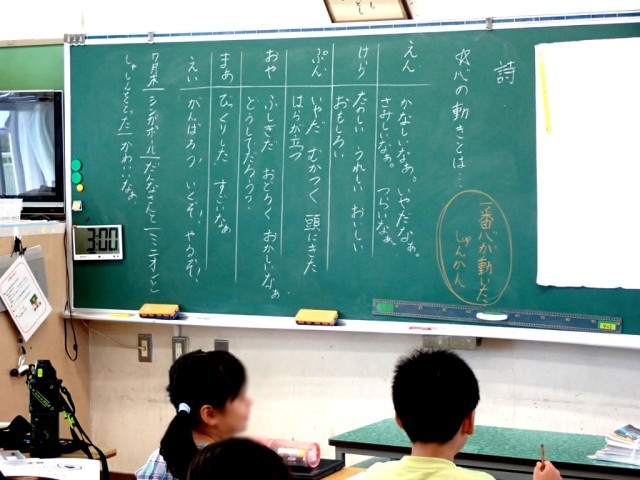 詩
☆心の動きとは…
一番心が動いた
しゅんかん
えん かなしいなぁ。いやだなぁ。
さみしいなぁ。つらいなぁ。
けら たのしい うれしい おいしい
おもしろい
ぷん いやだ むかつく 頭にきた
はらが立つ
おや ふしぎだ おどろく おかしいなぁ
どうしてだろう?
まあ びっくりした すごいなぁ
えい がんばろう、いくぞ! やるぞ!
7月末 シンガポール だんなさんと ミニオン と
しゃしんをとった かわいいなぁ。
3:00